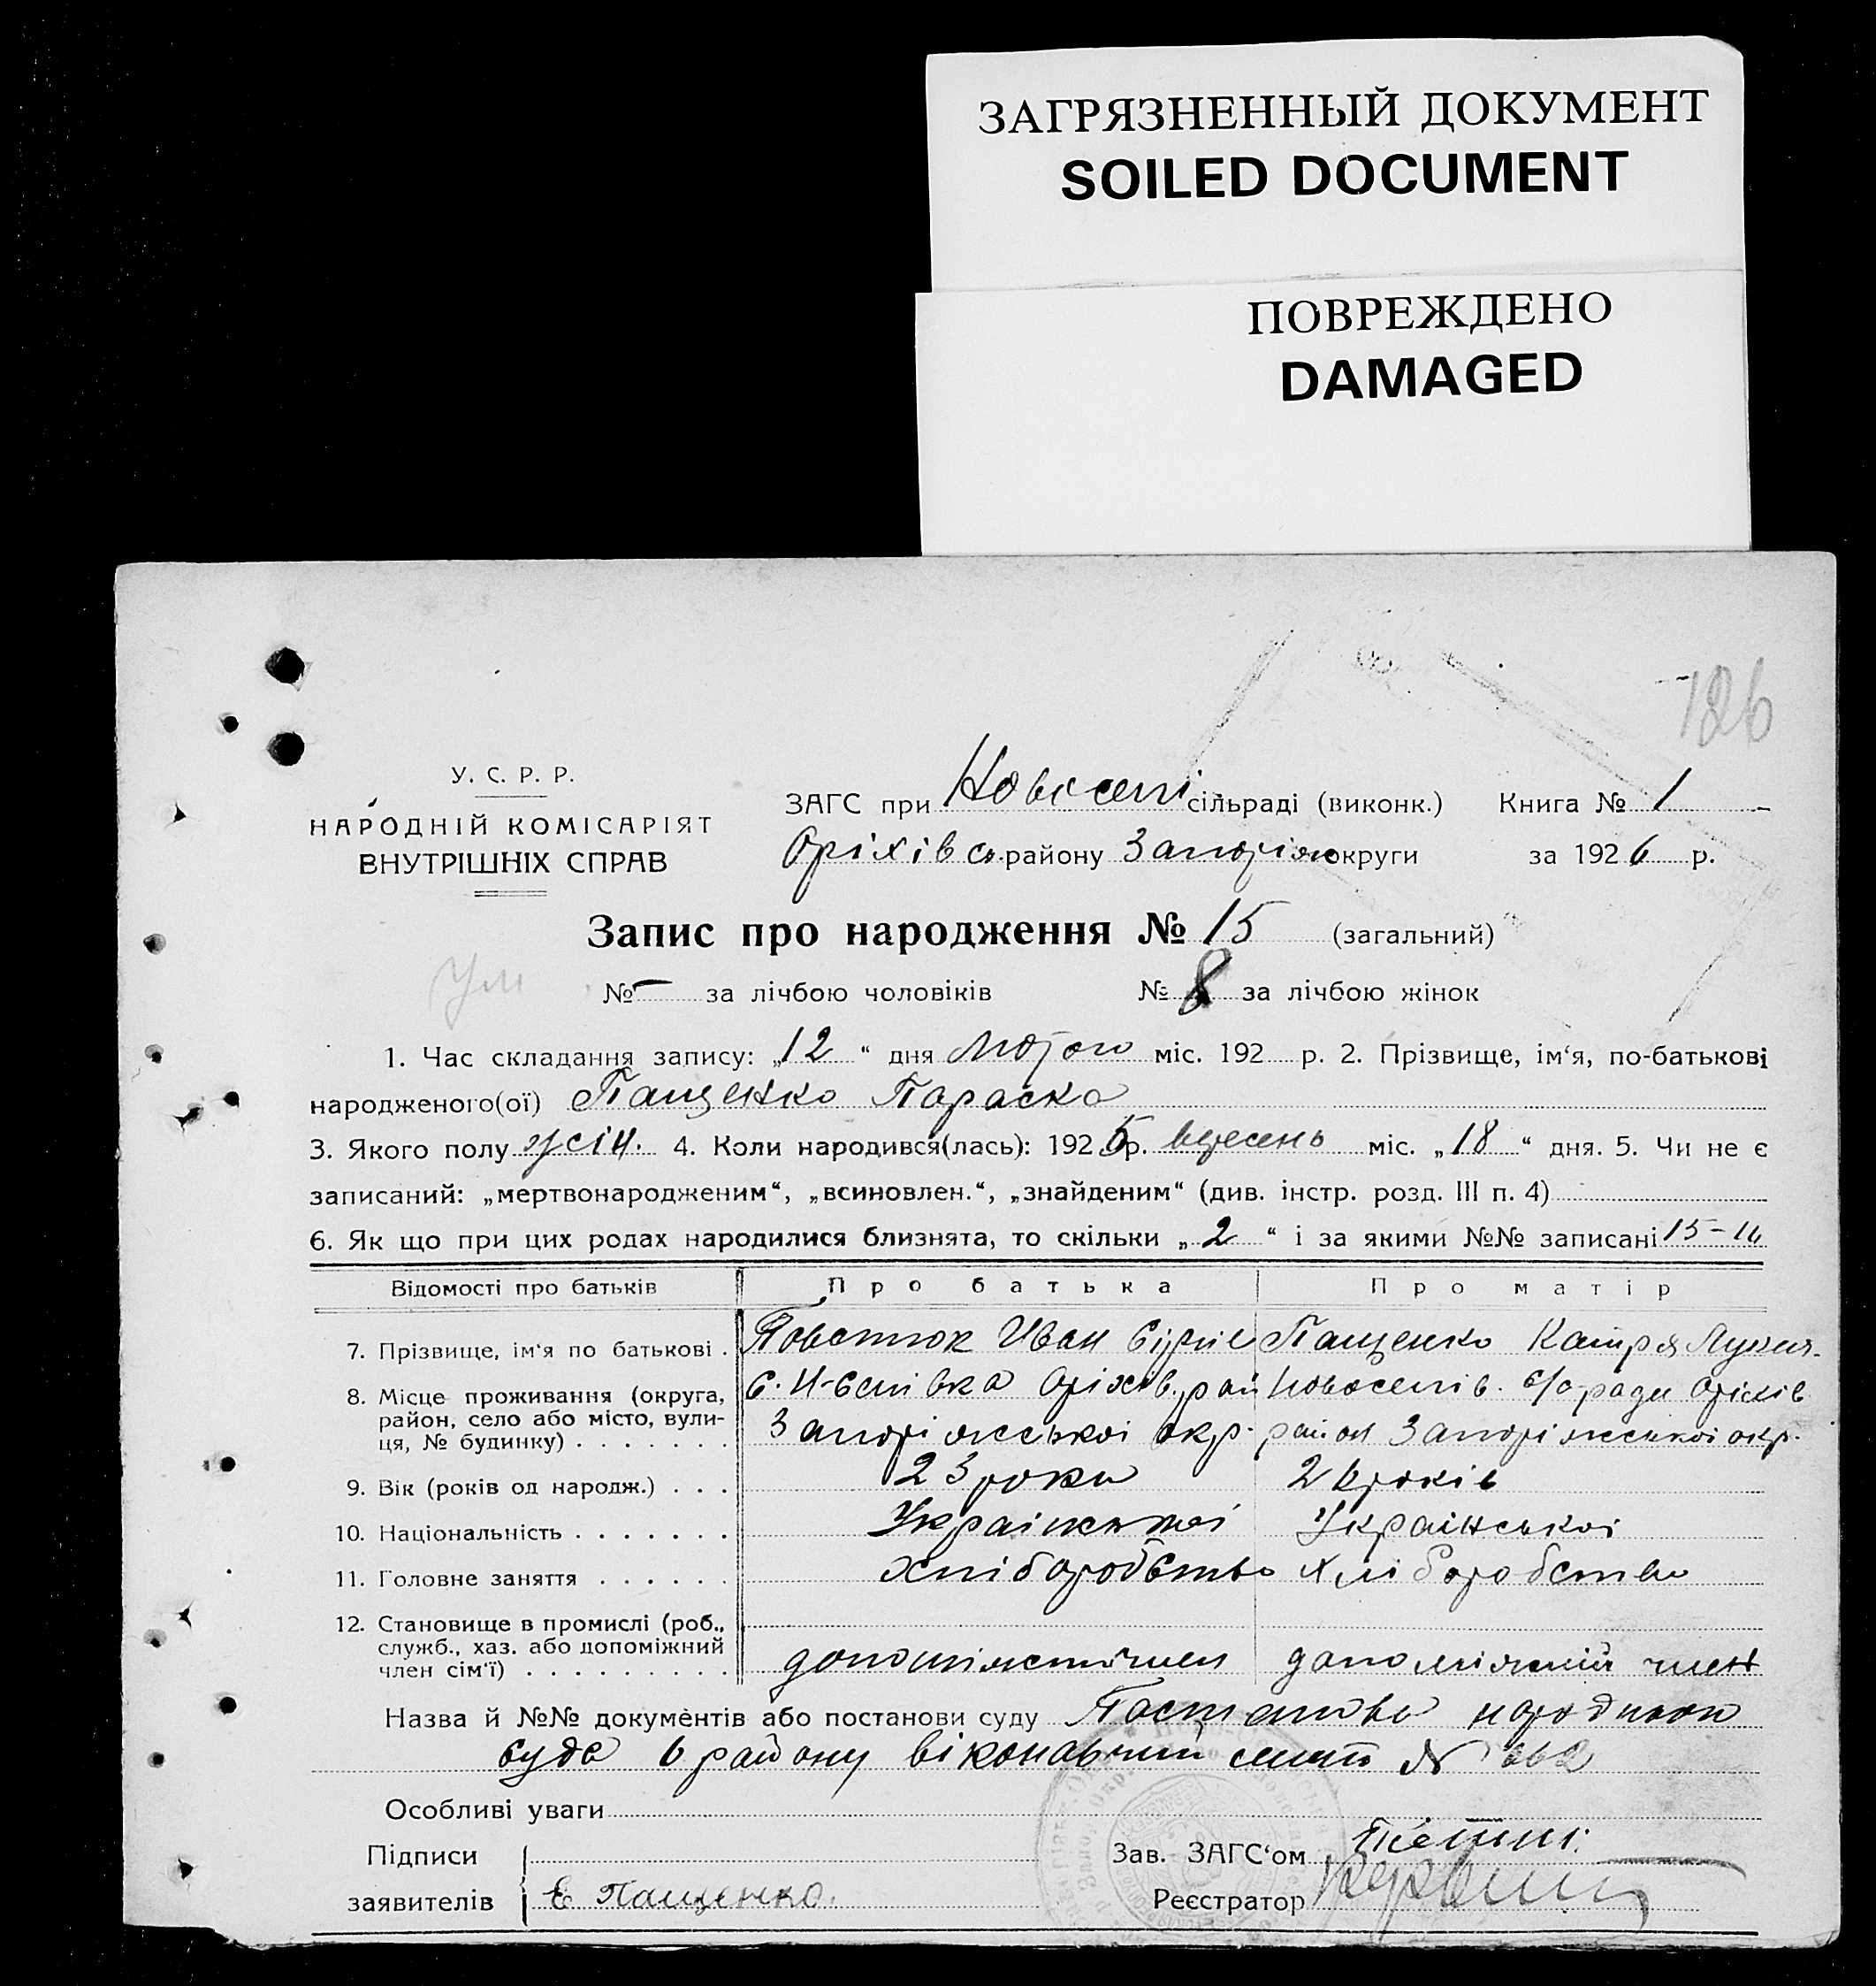 ЗАГРЯЗНЕННЫЙ ДОКУМЕНТ
SOILED DOCUMENT
ПОВРЕЖДЕНО
DAMAGED
126
У. С. Р. Р.
НАРОДНІЙ КОМІСАРІЯТ
ВНУТРІШНІХ СПРАВ
ЗАГС при Новоселі сільраді (виконк.) Книга № 1
Оріхівсь. району Запоріж округи за 1926 р.
Запис про народження № 15 (загальний)
№ — за лічбою чоловіків № 8 за лічбою жінок
1. Час складання запису: „12“ дня Лютого міс. 192 р. 2. Прізвище, ім‘я, по-батькові
народженого(ої) Пащенко Параска
3. Якого полу жсін. 4. Коли народився(лась): 1925 р. вересень міс. „18“ дня. 5. Чи не є
записаний: „мертвонародженим“, „всиновлен.“, „знайденим“ (див. інстр. розд. III п. 4)
6. Як що при цих родах народилися близнята, то скільки „2“ і за якими №№ записані 15-16
Відомості про батьків Про батька Про матір
7. Прізвище, ім‘я по батькові . Иван Пащенко Катря
8. Місце проживання (округа,
район, село або місто, вули-
ця, № будинку)
Оріхів. рай Новоселів. с/ради Оріхів
Запоріжської окр. район Запоріжської окр.
9. Вік (років од народж.) . . . 23 роки 26 років
10. Національність Української Української
11. Головне заняття Хліборобство Хліборобство
12. Становище в промислі (роб.,
служб., хаз. або допоміжний
член сім‘ї)
допоміжний член
Назва й №№ документів або постанови суду Постанова народного
суда 6 району віконавчий лист №
Особливі уваги
Підписи
заявителів Є Пащенко
Зав. ЗАГС‘ом
Реєстратор